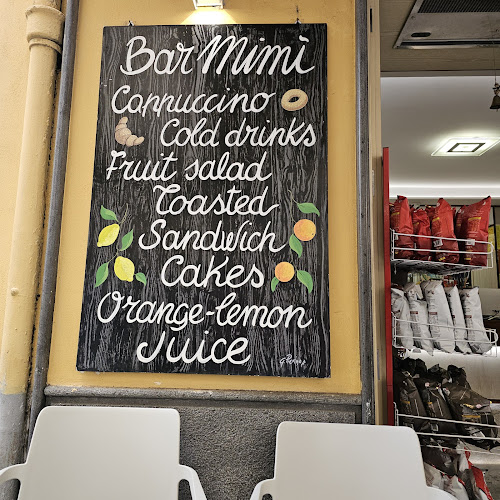 Bar Mimì
Cappuccino
Cold drinks
Fruit salad
Toasted
Sandwich
Cakes
Orange-lemon
Juice